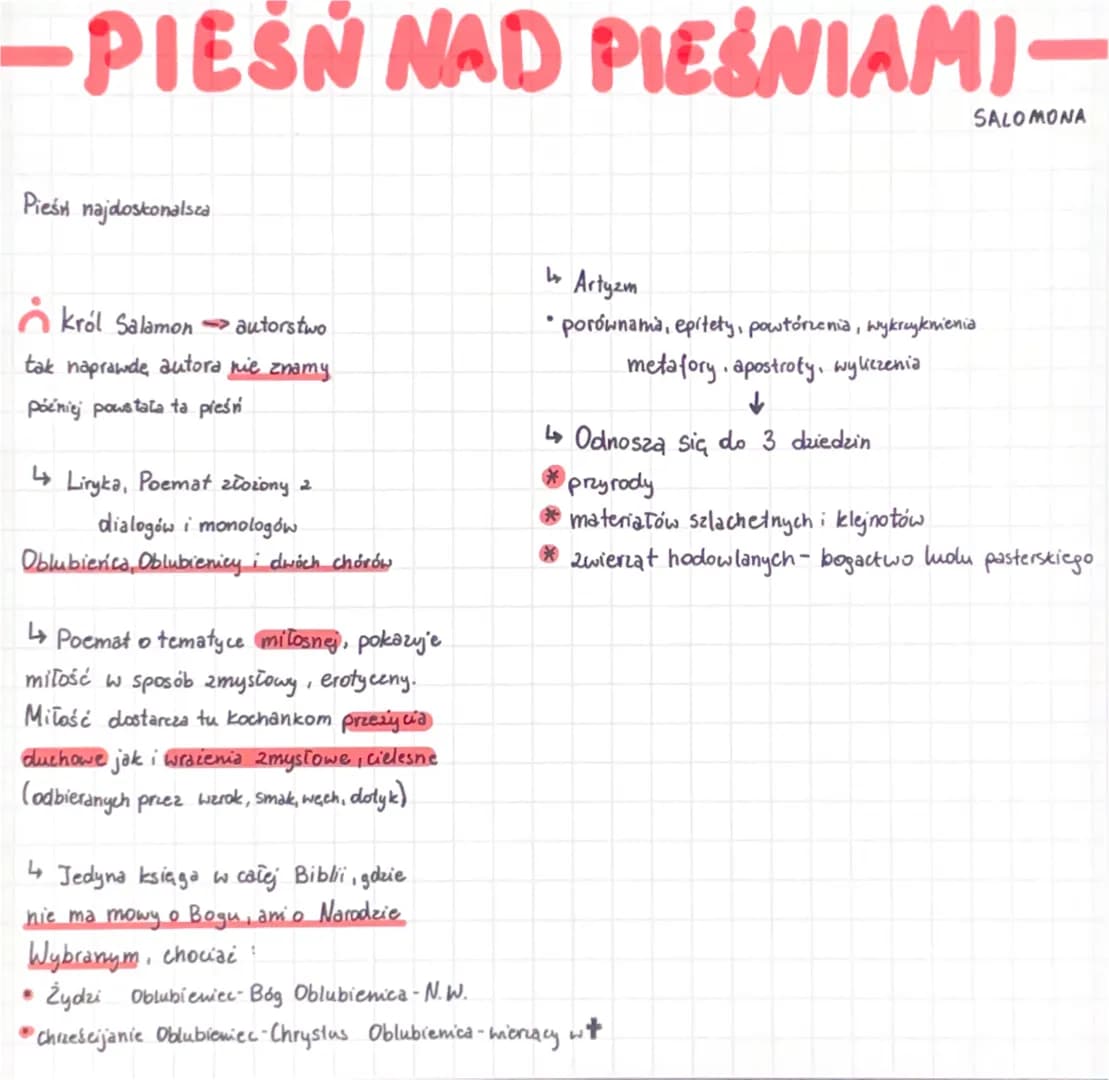 PIEŚŃ NAD PIEŚNIAMI
SALOMONA
Pieśń najdoskonalsza
król Salamon → autorstwo
tak naprawdę autora nie znamy
później powstała ta pieśń
↳ Liryka, Poemat złożony z
dialogów i monologów
Oblubieńca, Oblubienicy i dwóch chórów
↳ Poemat o tematyce miłosnej, pokazuje
miłość w sposób zmysłowy, erotyczny.
Miłość dostarcza tu kochankom przeżycia
duchowe jak i wrażenia zmysłowe, cielesne
(odbieranych przez wzrok, smak, węch, dotyk)
↳ Jedyna księga w całej Biblii, gdzie
nie ma mowy o Bogu, ani o Narodzie
Wybranym, chociaż:
• Żydzi Oblubieniec - Bóg Oblubienica - N.W.
• chrześcijanie Oblubieniec - Chrystus Oblubienica - wierzący w ✝
↳ Artyzm
• porównania, epitety, powtórzenia, wykrzyknienia
metafory, apostrofy, wyliczenia
↓
↳ Odnoszą się do 3 dziedzin
* przyrody
* materiałów szlachetnych i klejnotów
* zwierząt hodowlanych - bogactwo ludu pasterskiego